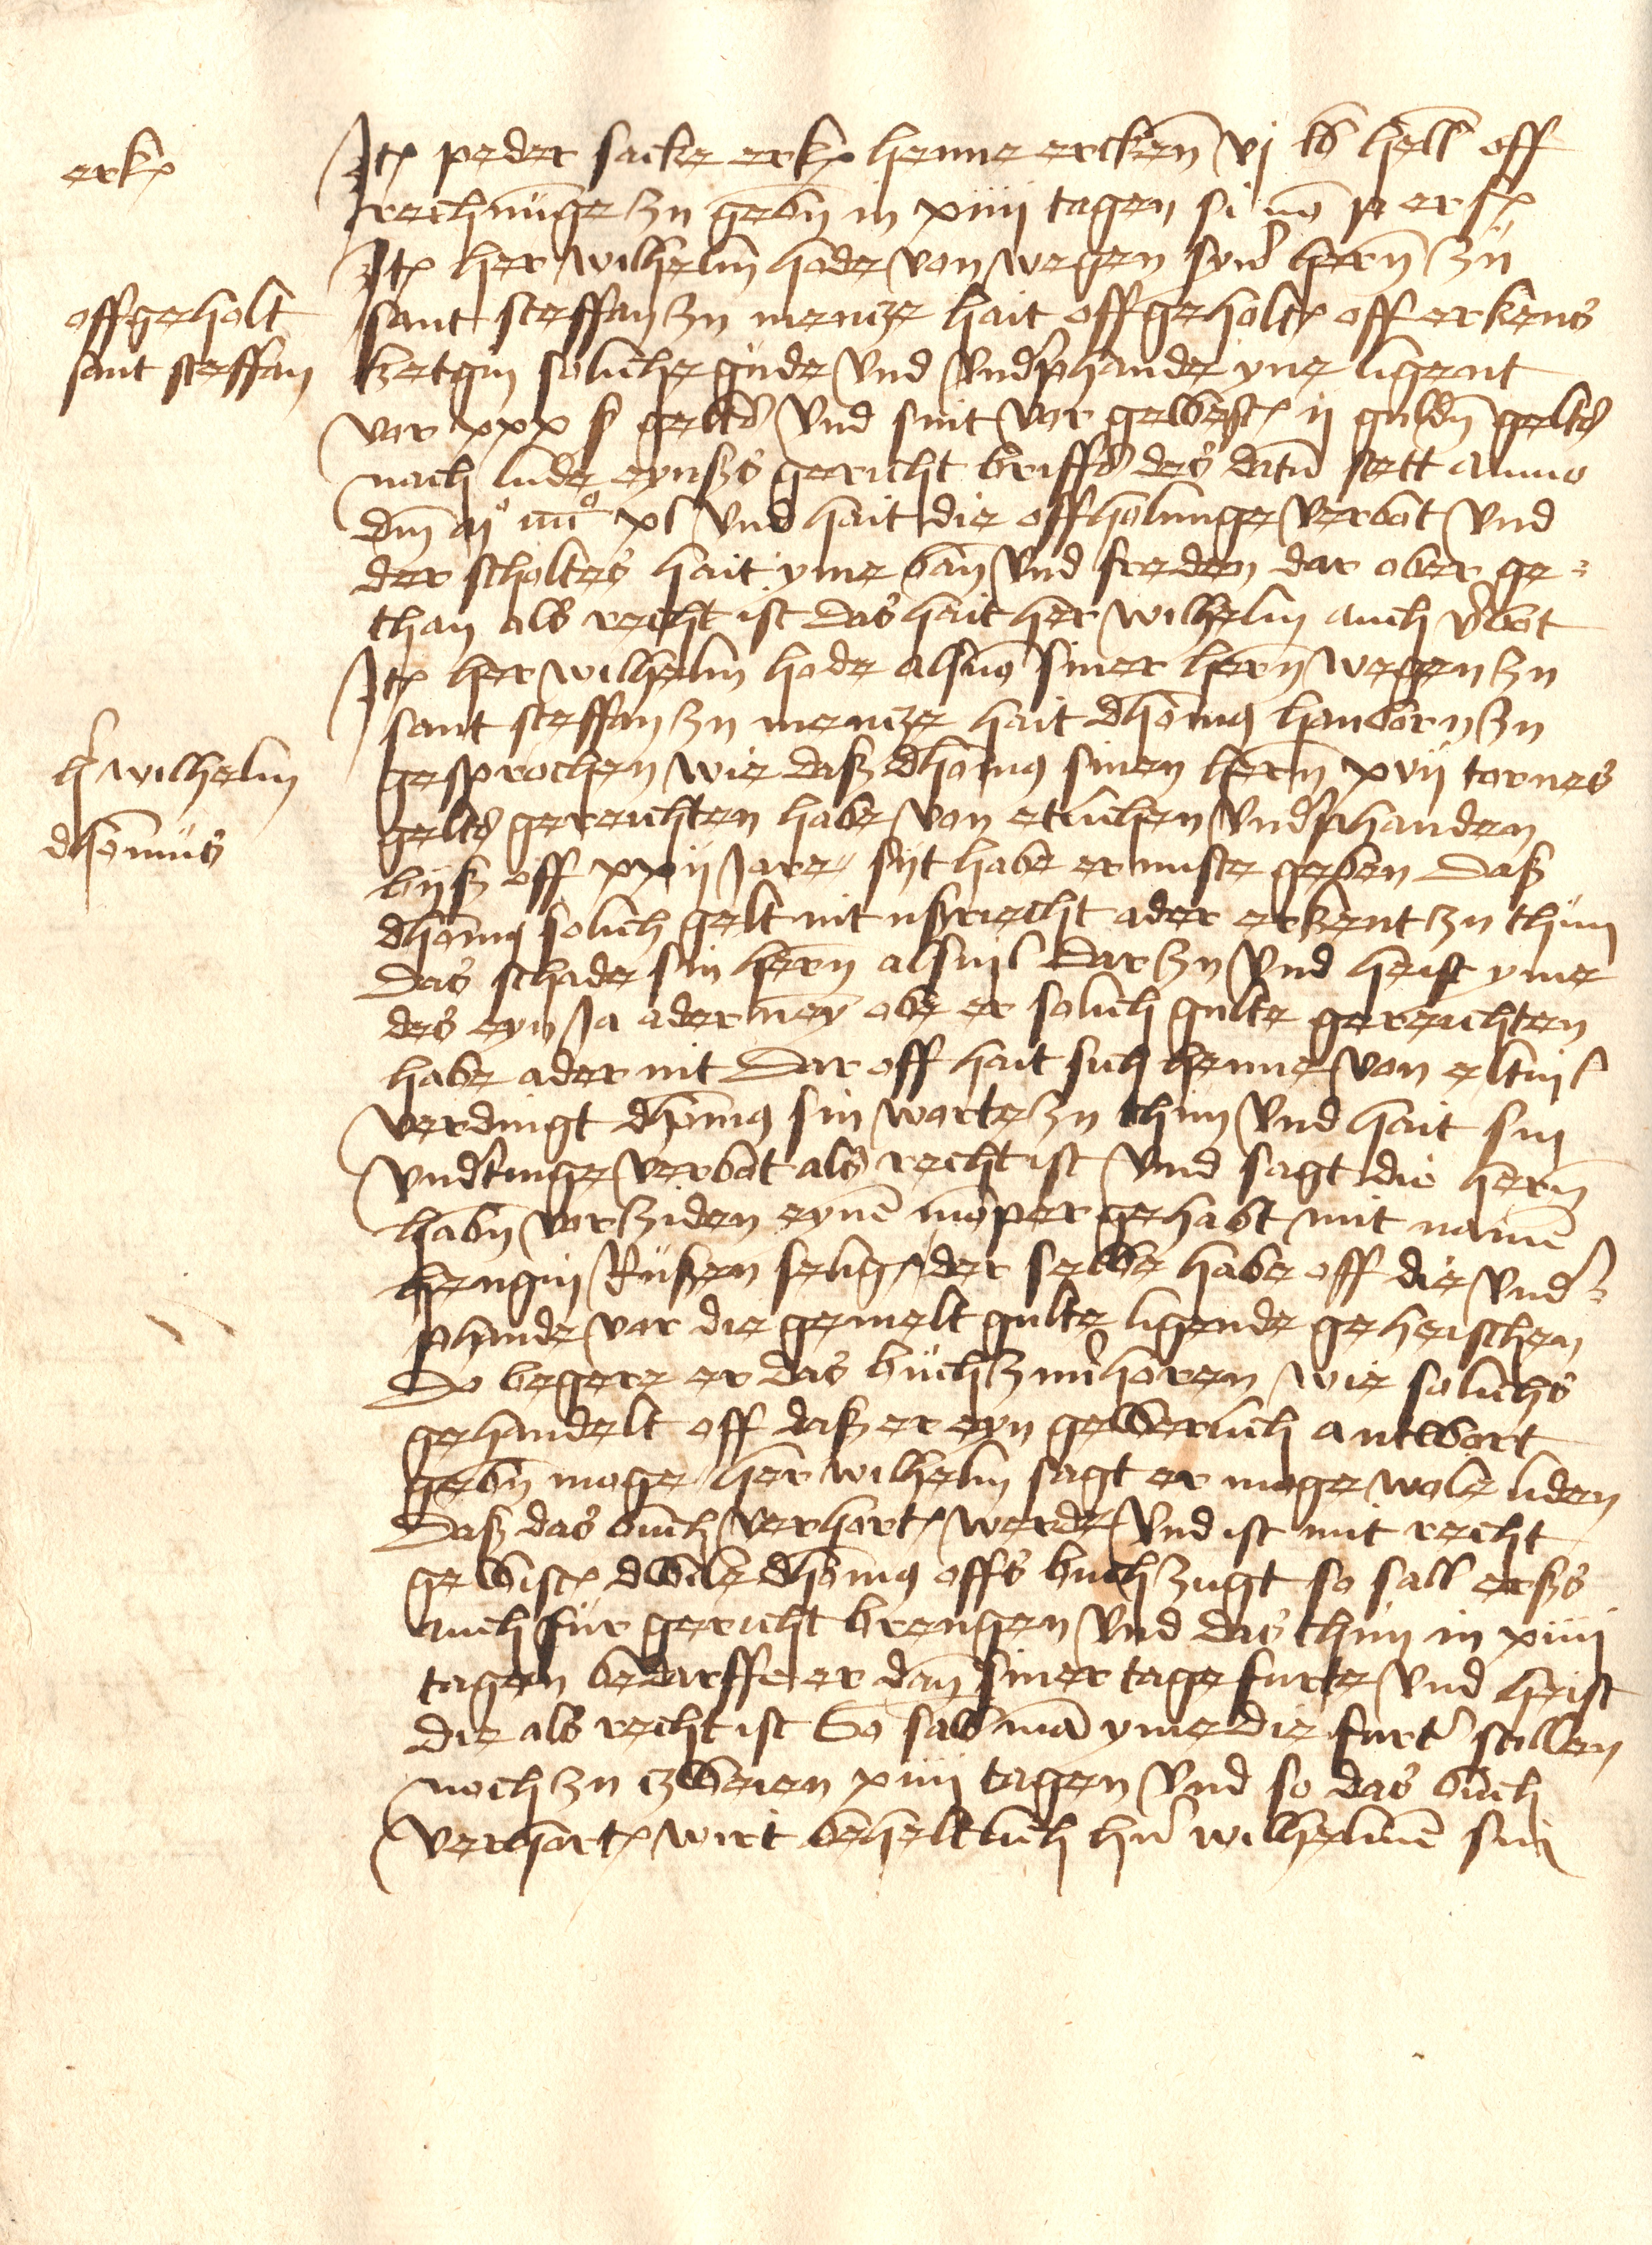 erk(
Jt( peder sacke erk( henne ercken̄ vj lb hell off
rechnu̅ge zu geb̅n in xiiij tagen si no̅ p erf(
Jt( her wilhelm hode von wegen syn' hern̄ zu
offgeholt
sant steffan zu mencze hait offgeholt( off erkens
sant steffan
ketgin soliche gude vnd vnd'phande yne ligent
vor xxx ß gelts vnd sint vor gewest( ij guld̅n gelts
nach lude eynßs gericht briffs des datu̅ stett anno
dm̄ m° iiii° xl vnd hait die offholunge verbot vnd
der scholtes hait yme ban̄ vnd freden dar ober ge=
than als recht ist das hait her wilhelm auch v'bot
Jt( her wilhelm hode als mo̅ siner hern̄ wegen zu
sant steffan zu mencze hait dho̅mus hanborn zu
h' wilhelm
gesprochen wie daß dho̅mus sinen hern̄ xvij tornes
gelts gereichten habe von etlichen vnd'phanden
dho̅mus
byß off xxij Jare syt habe er nuste geben daß
dho̅mus solich gelt nit ußriecht ader erkent zu thun
das schade sin hern̄ alsuil dar zu vnd heist yme
des eyn Ja ader neyn̄ obe er solich gulte gereichten
habe ader nit dar off hait sich henne von eltuil
verdingt dho̅mus sin worte zu thun vnd hait sin
vnd'tinge verbot als recht ist vnd sagt die hern̄
hab̅n vorziden eyne̅ mo̅per gehabt mit name̅
hengin Rußen selig der selbe habe off die vnd'=
phande vor die gemelt gulte ligende geheischen
Do begere er das buch zuu'horen wie solichs
gehandelt off daß er eyn gewerlich antwort
geb̅n moge her wilhelm sagt er moge wole liden
daß das buch verhort( werde vnd ist mit recht
gewist( dwile dho̅mus offs buch zugt so sall erßs
auch fur gericht brengen vnd das thun in xiiij
tagen bedarffe er dan̄ siner tage furte vnd heist
die als recht ist So sall ma̅ yme die furt' stellen
noch zu zweien xiiij tagen vnd so das buch
verhort( wirt beheltlich hn' wilhelme̅ sin